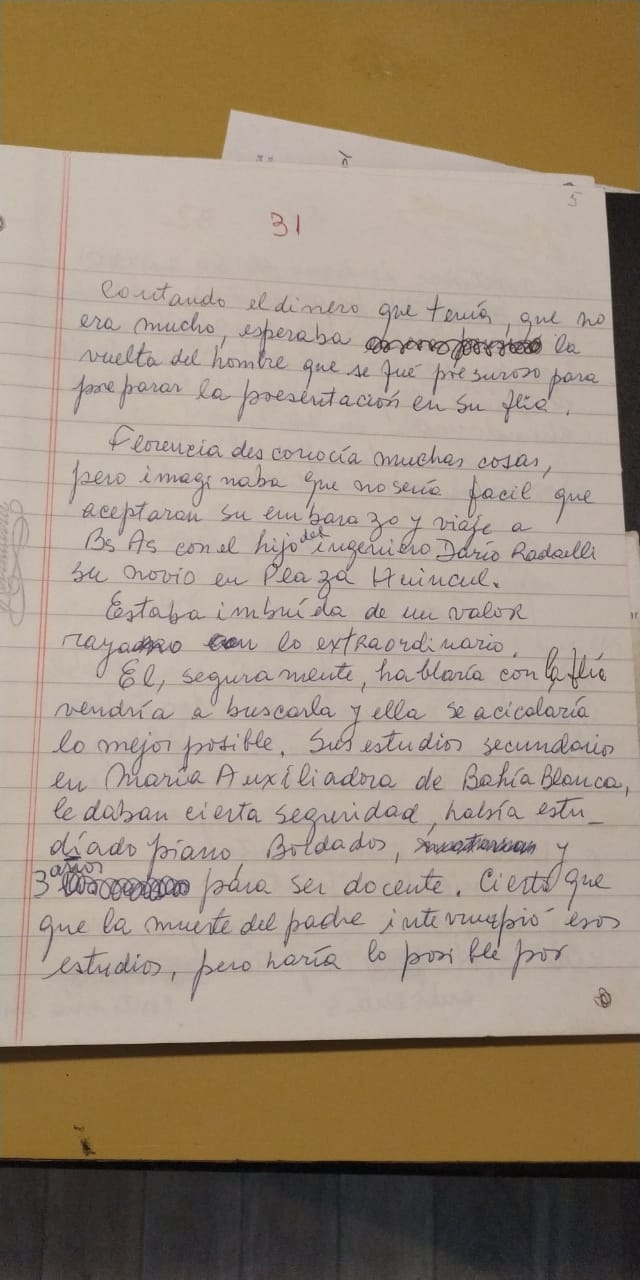 5
31
Contando el dinero que tenía, que no
era mucho, esperaba la
vuelta del hombre que se fué presuroso para
preparar la presentación en su flia.
Florencia desconocía muchas cosas,
pero imaginaba que no sería facil que
aceptaran su embarazo y viaje a
Bs As con el hijo del ingeniero Darío Radaelli
su novio en Plaza Huincul.
Estaba imbuída de un valor
rayano con lo extraordinario.
El, seguramente, hablaría con la flia
vendría a buscarla y ella se acicalaría
lo mejor posible. Sus estudios secundarios
en María Auxiliadora de Bahía Blanca,
le daban cierta seguridad, había estu_
diado piano, Boldados, y
3 años para ser docente. Cierto que
que la muerte del padre interrumpió esos
estudios, pero haría lo posible por